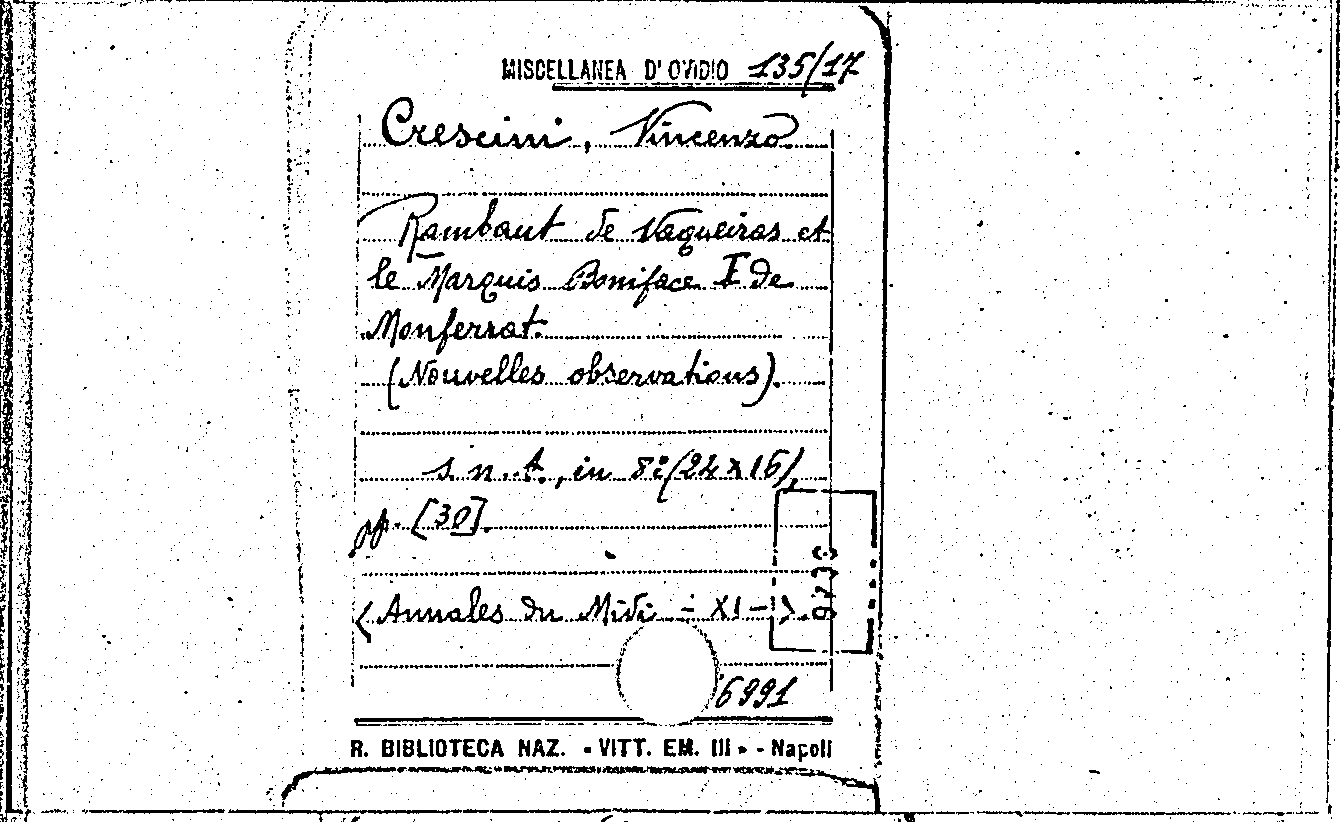 MISCELLANEA D'OVIDIO 135/17
Crescini, Vincenzo
Rambaut de Vaqueiras et
le Marquis Boniface I de
Monferrat.
(Nouvelles observations).
s. n. t., in 8° (24x16),
pp. [30].
(Annales du Midi - XI -).
6991
R. BIBLIOTECA NAZ. "VITT. EM. III" - Napoli